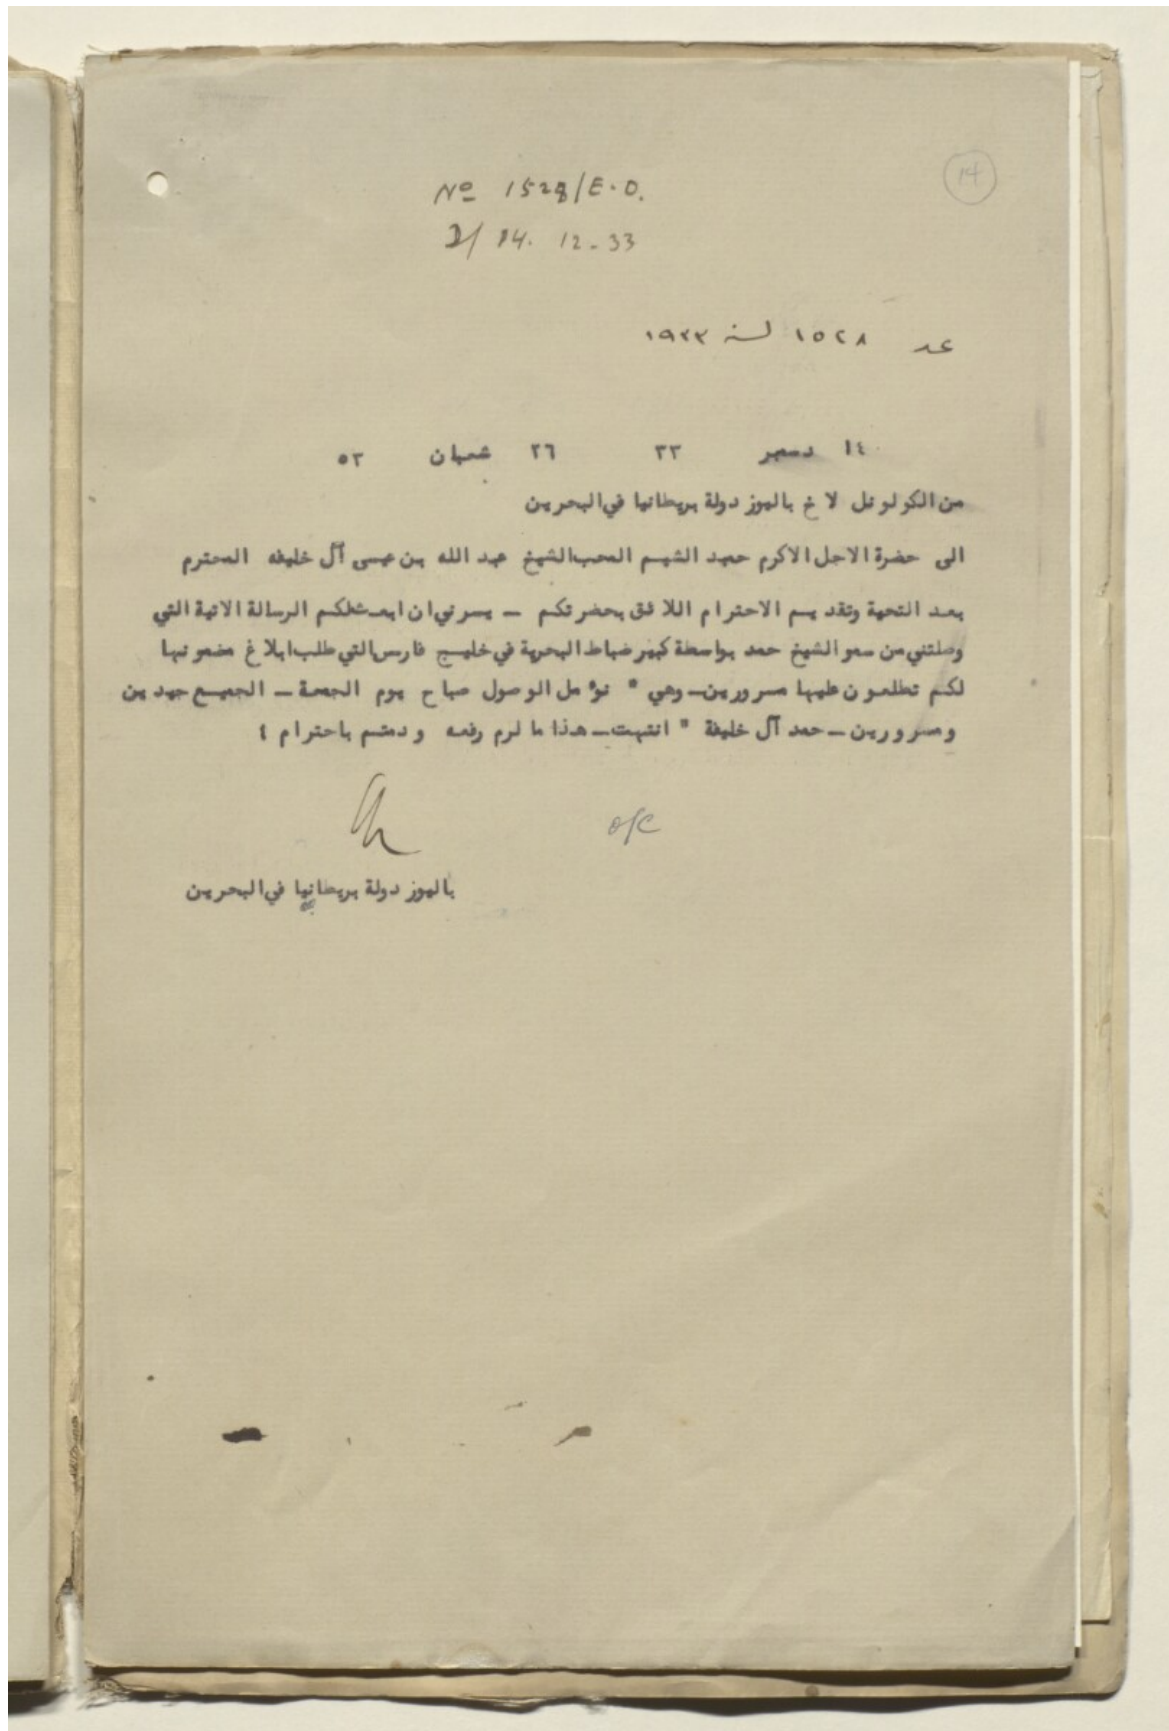 14
No 1528/E.O.
D/ 14. 12-33
عدد ١٥٢٨ لسنة ١٩٣٣
١٤ دسمبر ٣٣ ٢٦ شعبان ٥٢
من الكولونل لاخ باليوز دولة بريطانيا في البحرين
الى حضرة الاجل الاكرم حميد الشيم المحب الشيخ عبد الله بن عيسى آل خليفه المحترم
بعد التحية وتقديم الاحترام اللائق بحضرتكم - يسرني ان ابعث لكم الرسالة الاتية التي
وصلتني من سمو الشيخ حمد بواسطة كبير ضباط البحرية في خليج فارس التي طلب ابلاغ مضمونها
لكم تطلعون عليها مسرورين - وهي " نؤمل الوصول صباح يوم الجمعة - الجميع جيدين
ومسرورين - حمد آل خليفة " انتهت - هذا ما لزم رفعه ودمتم باحترام ؛
o/c
باليوز دولة بريطانيا في البحرين